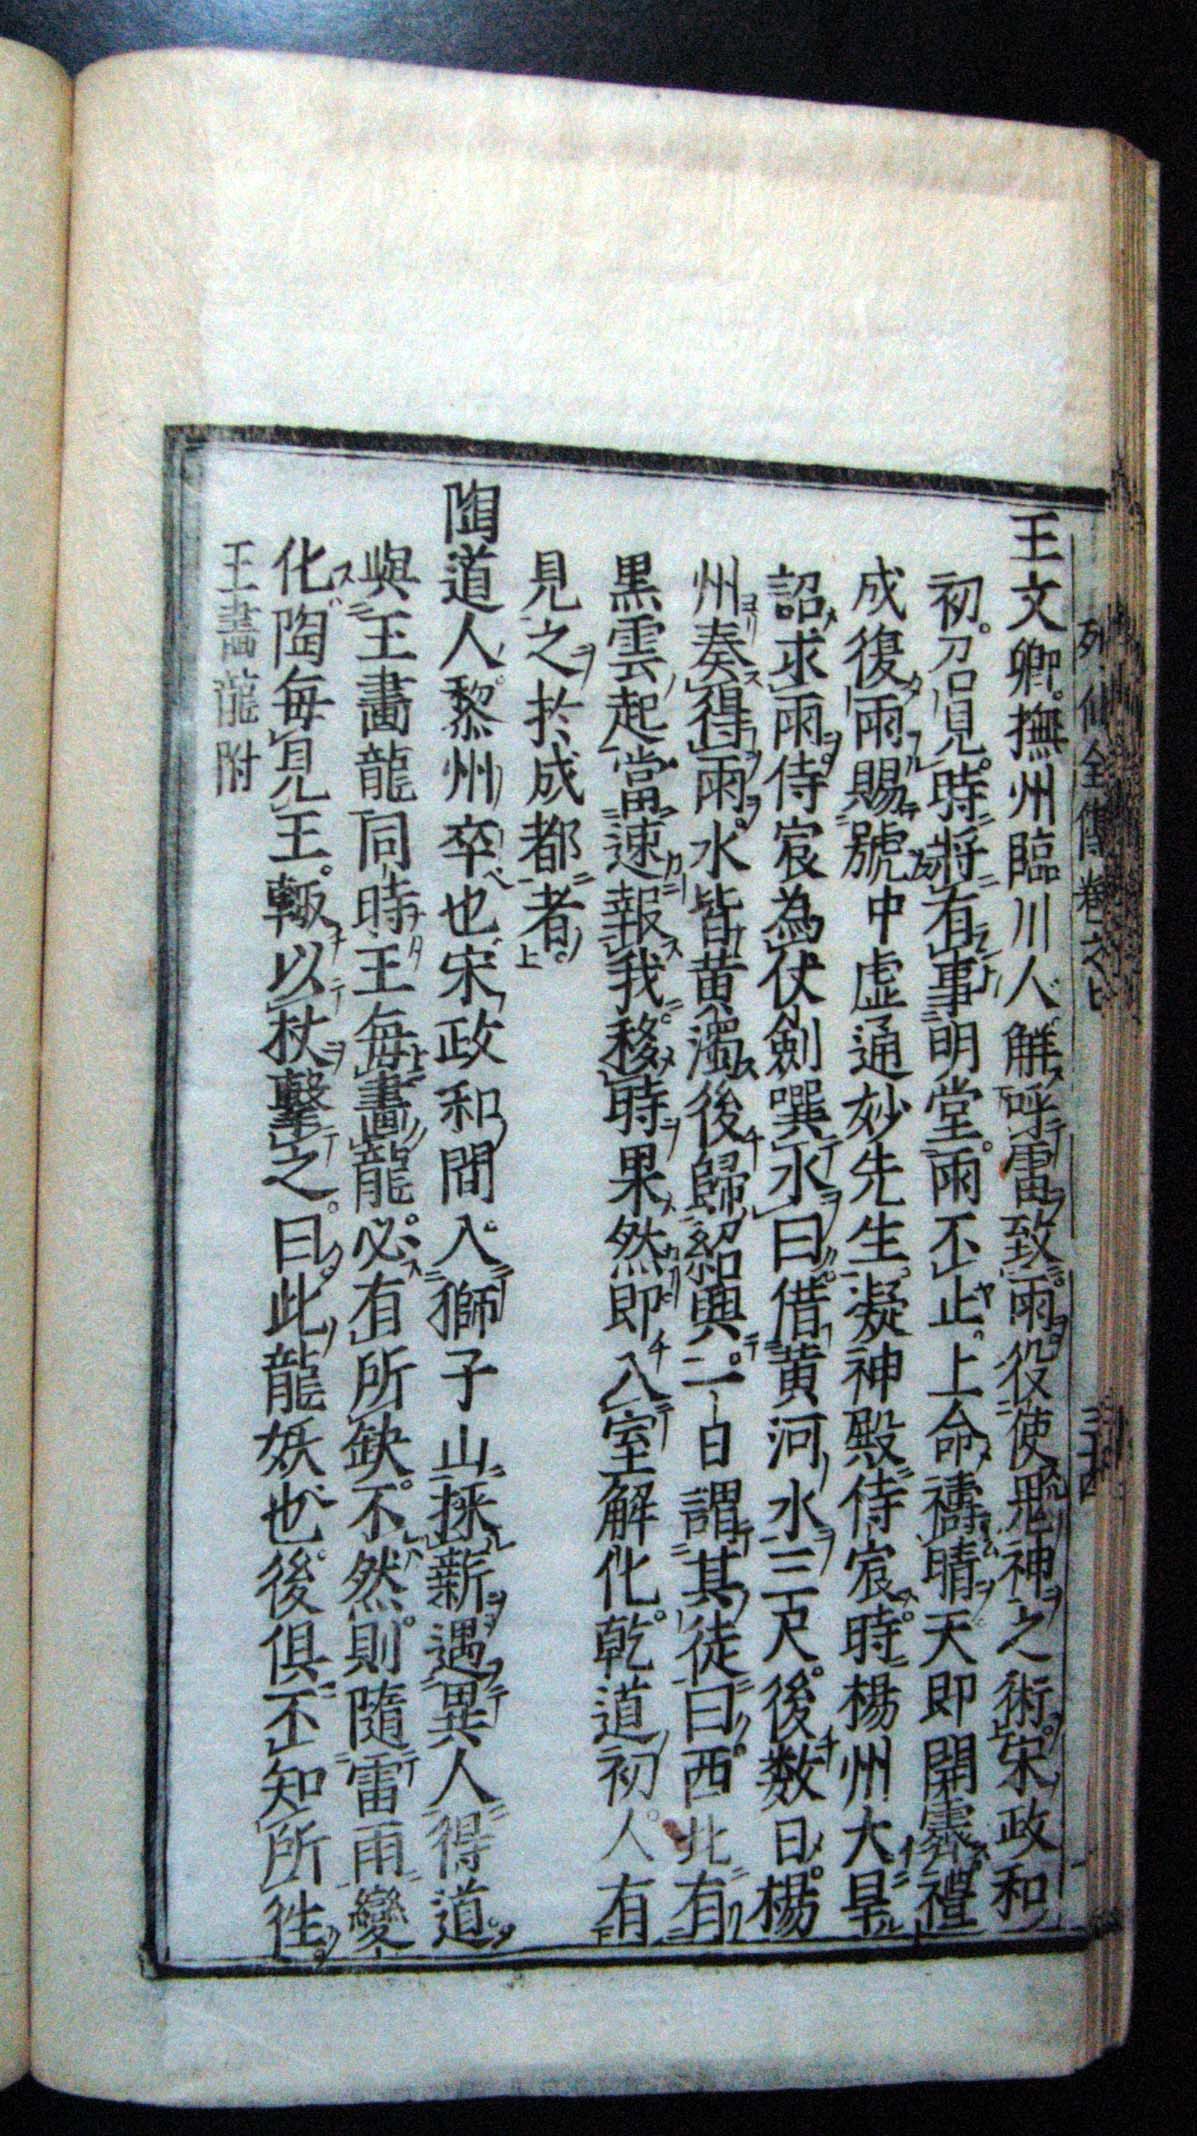 列仙全傳卷之七
王文卿撫州臨川人解呼雷致雨役使飛神之術宋政和
初召見時將有事明堂雨不止上命禱晴天即開霽禮
成復雨賜號冲虛通妙先生凝神殿侍宸時楊州大旱
詔求雨侍宸為伏劍噀水曰借黄河水三尺後数日楊
州奏得雨水皆黄濁後歸紹興二日謂其徒曰西北有
黒雲起當速報我移時果然即入室解化乾道初人有
見之於成都者
陶道人黎州卒也宋政和間入獅子山採薪遇異人得道
與王畵龍同時王每畵龍必有所缺不然則隨雷雨變
化陶每見王輙以杖擊之曰此龍妖也後俱不知所徃
王畵龍附